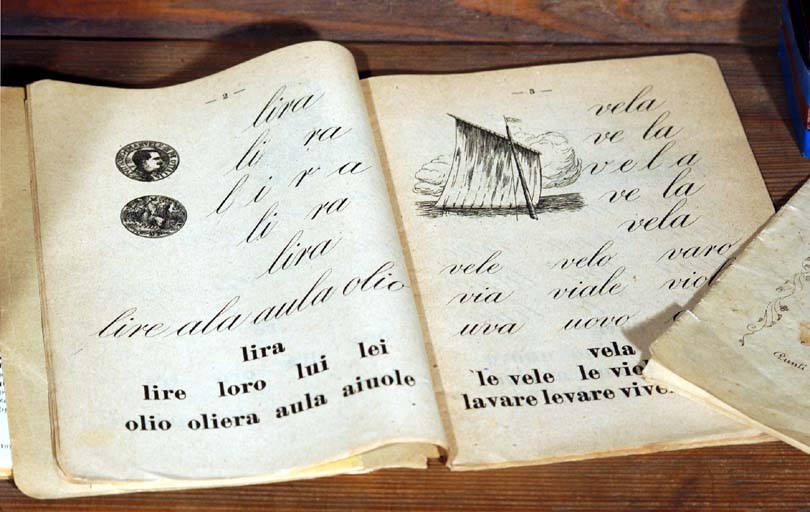 — 2 —
lira
li ra
l i r a
li ra
lira
lire ala aula olio
lira
lire loro lui lei
olio oliera aula aiuole
— 3 —
vela
ve la
v e l a
ve la
vela
vele velo varo
via viale
uva uovo
vela
le vele le
lavare levare